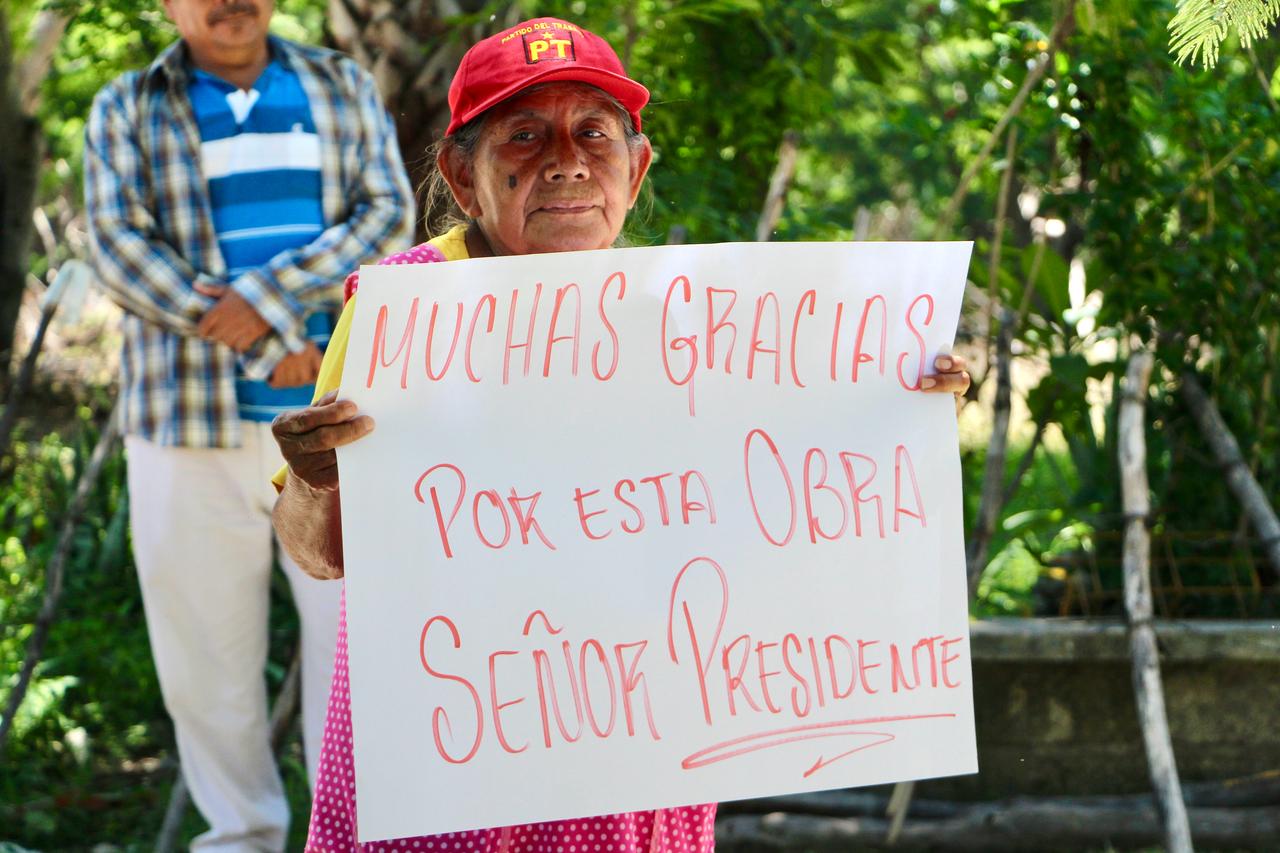 PARTIDO DEL TRA
PT
MUCHAS GRACIAS
POR ESTA OBRA
SEÑOR PRESIDENTE